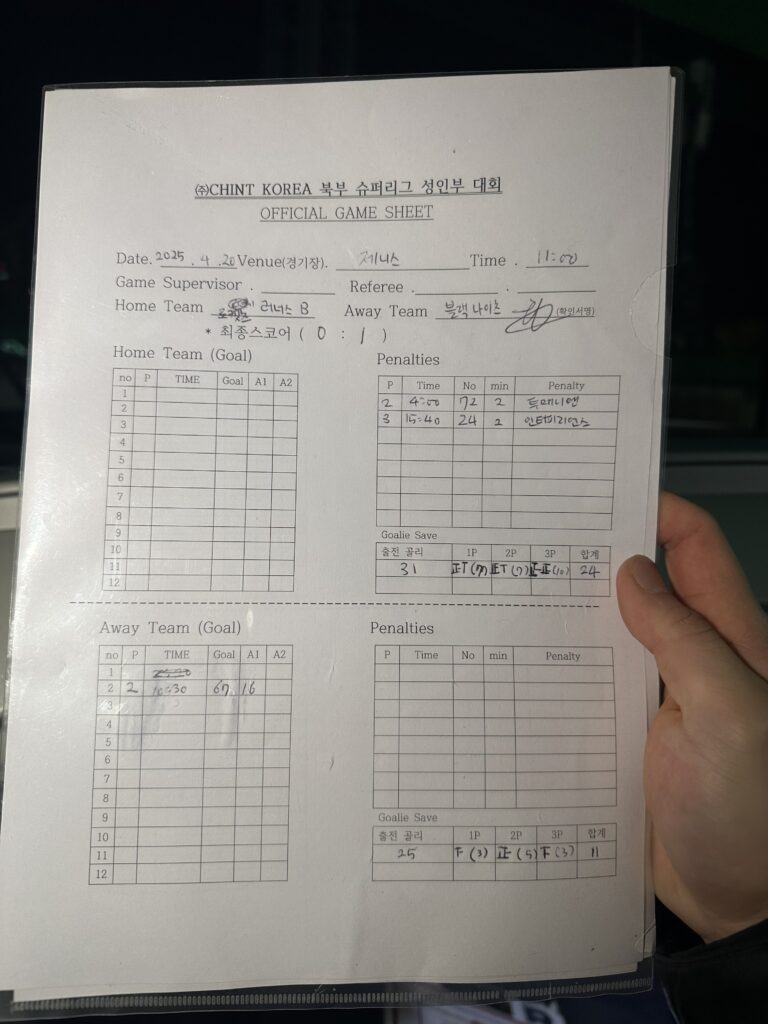 ㈜CHINT KOREA 북부 슈퍼리그 성인부 대회
OFFICIAL GAME SHEET
Date. 2025 . 4 . 20 Venue(경기장). 제니스 Time . 11:00
Game Supervisor . Referee . .
Home Team 러너스 B Away Team 블랙나이츠 (확인서명)
* 최종스코어 ( 0 : 1 )
Home Team (Goal)
no P TIME Goal A1 A2
1
2
3
4
5
6
7
8
9
10
11
12
Penalties
P Time No min Penalty
2 4:00 72 2 투매니맨
3 15:40 24 2 인터피리언스
Goalie Save
출전 골리 1P 2P 3P 합계
31 正T (7) 正T (7) 正正 (10) 24
Away Team (Goal)
no P TIME Goal A1 A2
1
2 2 10:30 67 16
3
4
5
6
7
8
9
10
11
12
Penalties
P Time No min Penalty
Goalie Save
출전 골리 1P 2P 3P 합계
25 下 (3) 正 (5) 下 (3) 11